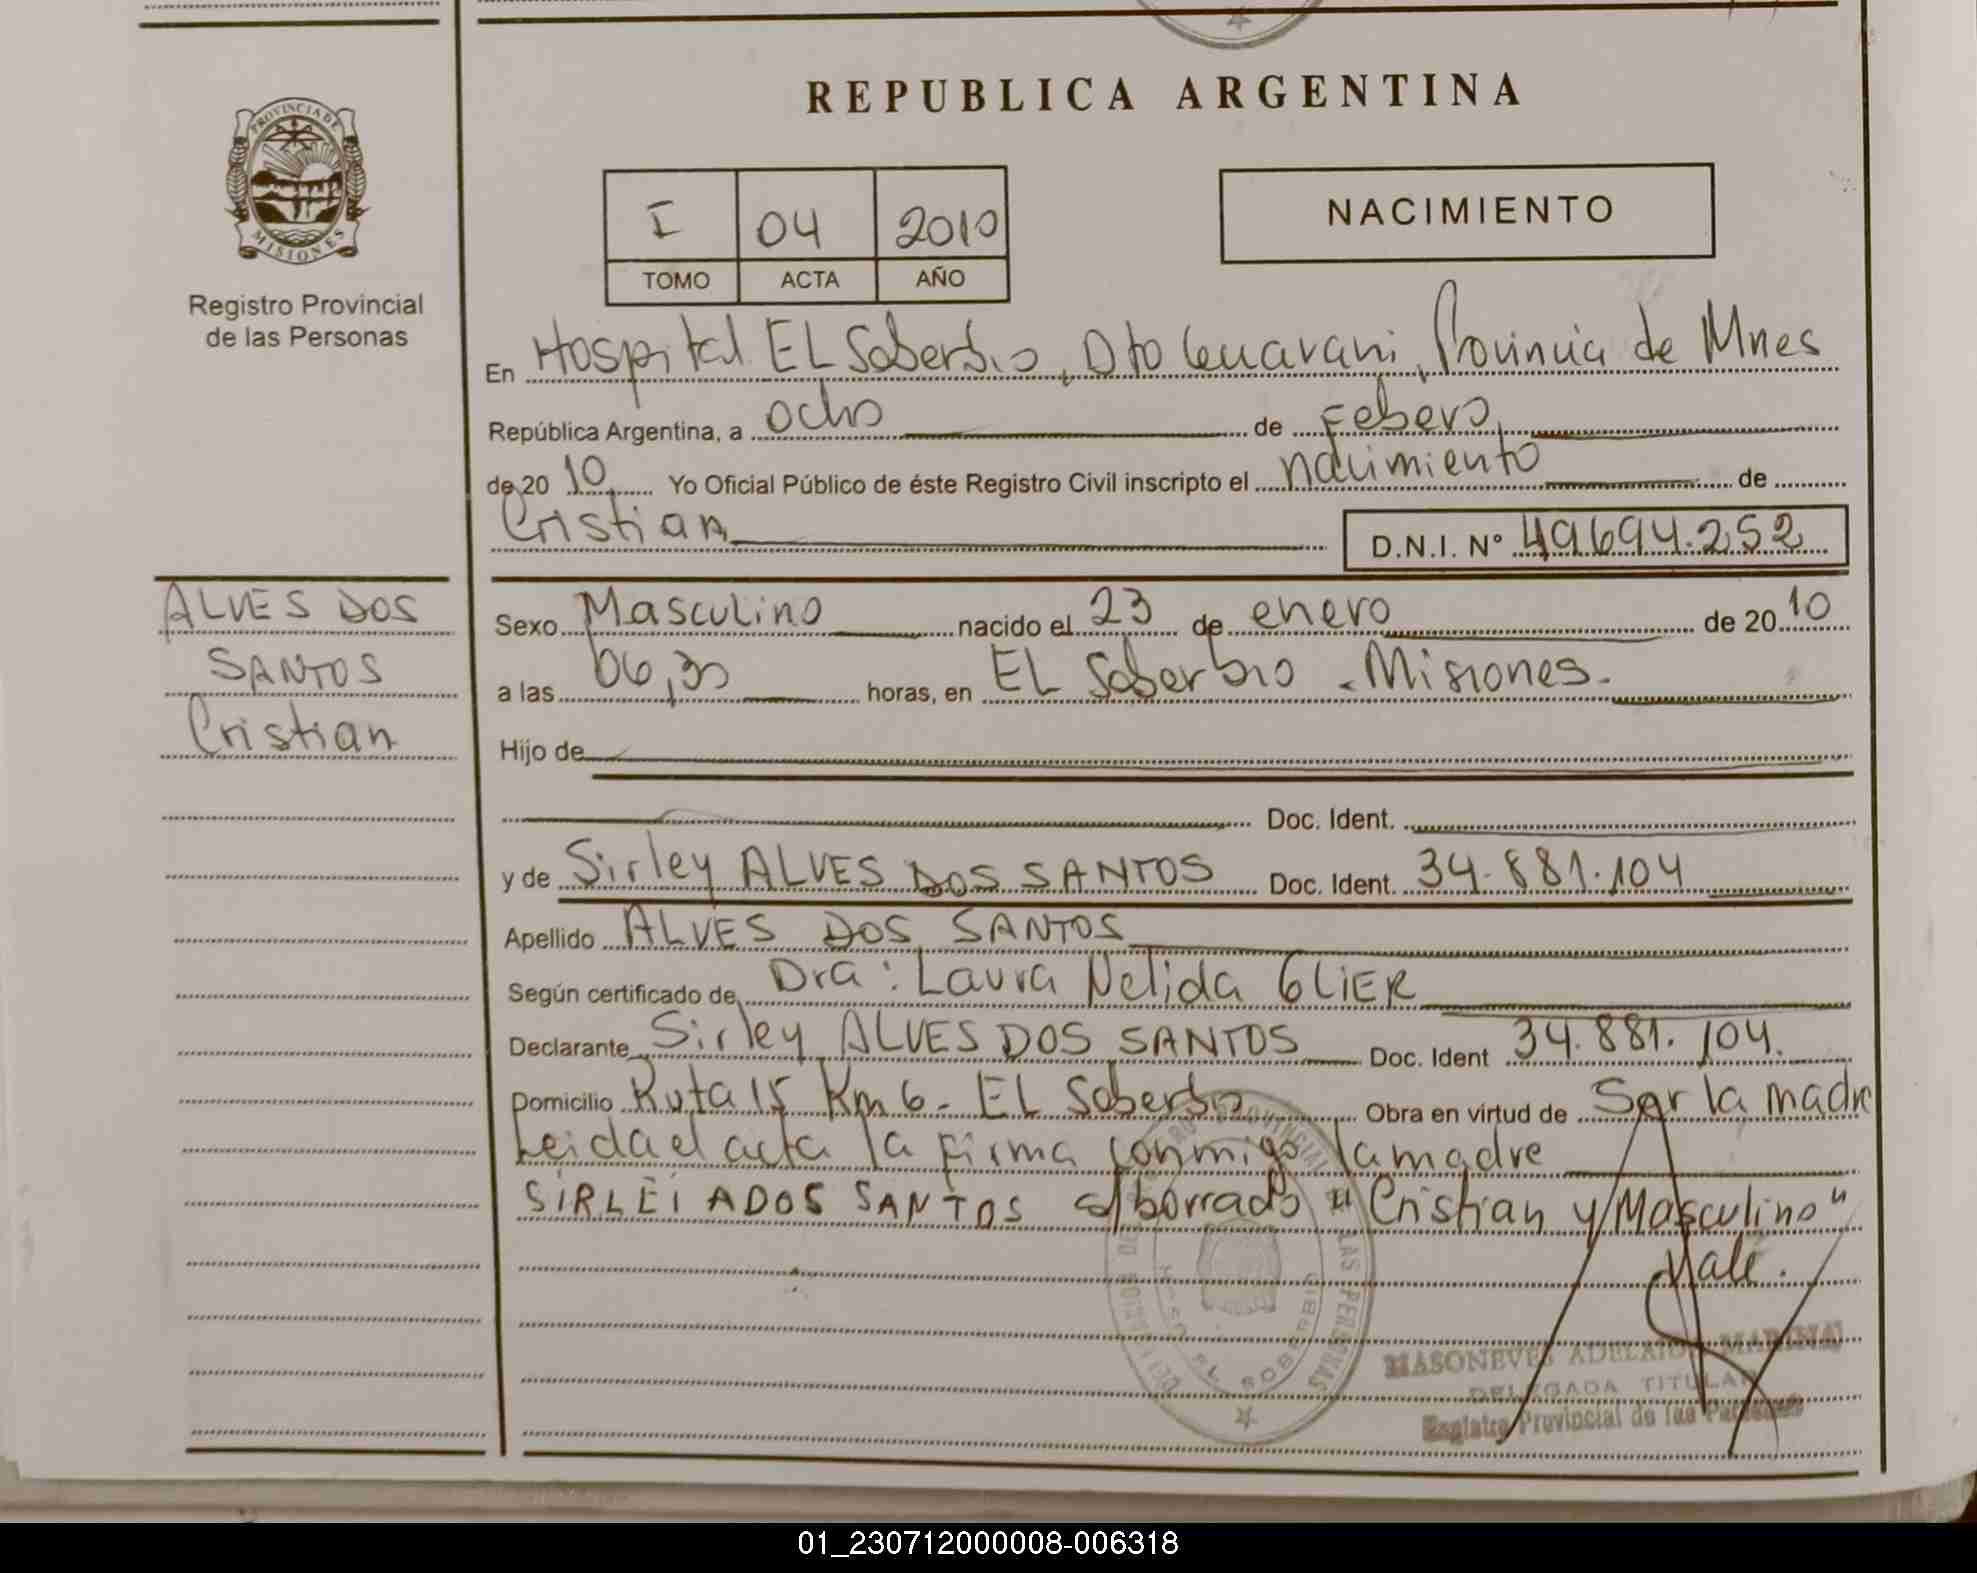 REPUBLICA ARGENTINA
PROVINCIA DE
MISIONES
Registro Provincial
de las Personas
I 04 2010
TOMO ACTA AÑO
NACIMIENTO
En Hospital EL Soberbio, Dto Guarani, Provincia de Mnes
República Argentina, a ocho de Febero
de 20 10 Yo Oficial Público de éste Registro Civil inscripto el nacimiento de
Cristian D.N.I. Nº 49694.252
ALVES DOS
SANTOS
Cristian
Sexo Masculino nacido el 23 de enero de 20 10
a las 06,30 horas, en EL Soberbio - Misiones.
Hijo de
Doc. Ident.
y de Sirley ALVES DOS SANTOS Doc. Ident. 34.881.104
Apellido ALVES DOS SANTOS
Según certificado de Dra: Laura Nelida GLIER
Declarante Sirley ALVES DOS SANTOS Doc. Ident 34.881.104.
Domicilio Ruta 15 Km 6 - EL Soberbio Obra en virtud de Ser la madre
Leida el acta la firma conmigo la madre
SIRLEI ADOS SANTOS s/borrado "Cristian y Masculino"
Vale.
EL SOBERBIO
LAS PERSONAS
MASONEVES ADELAIDA MARINA
DELEGADA TITULAR
Registro Provincial de las Personas
01_230712000008-006318